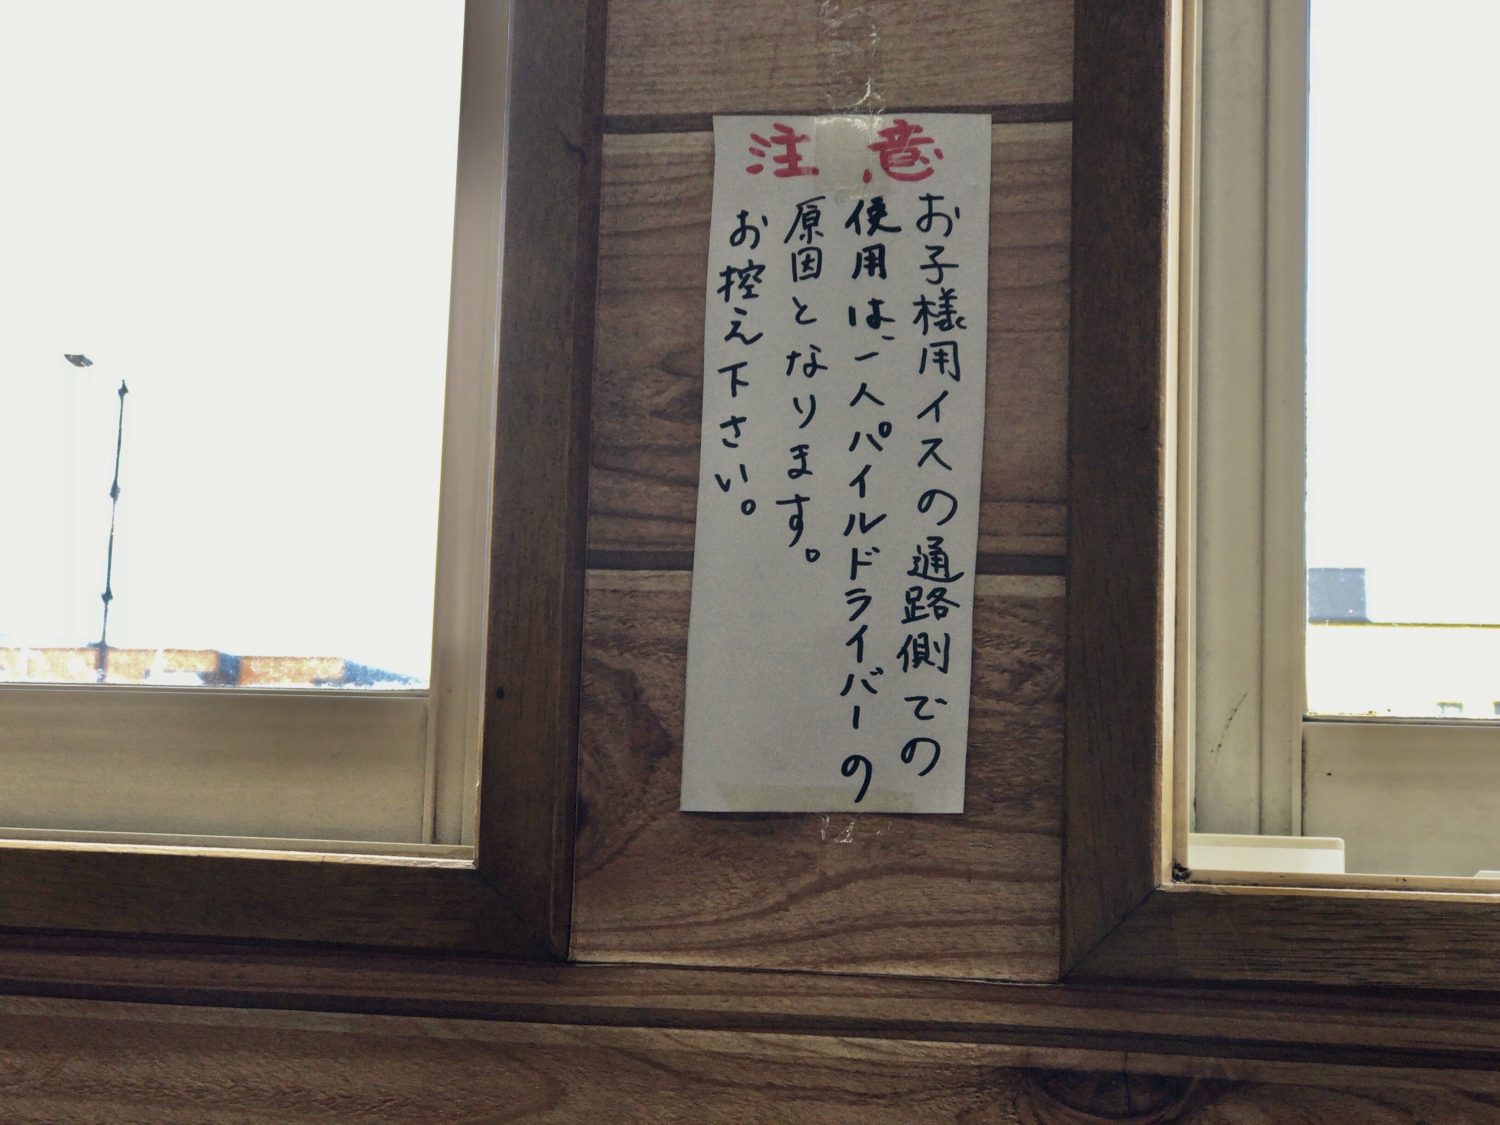 注意
お子様用イスの通路側での
使用は、一人パイルドライバーの
原因となります。
お控え下さい。